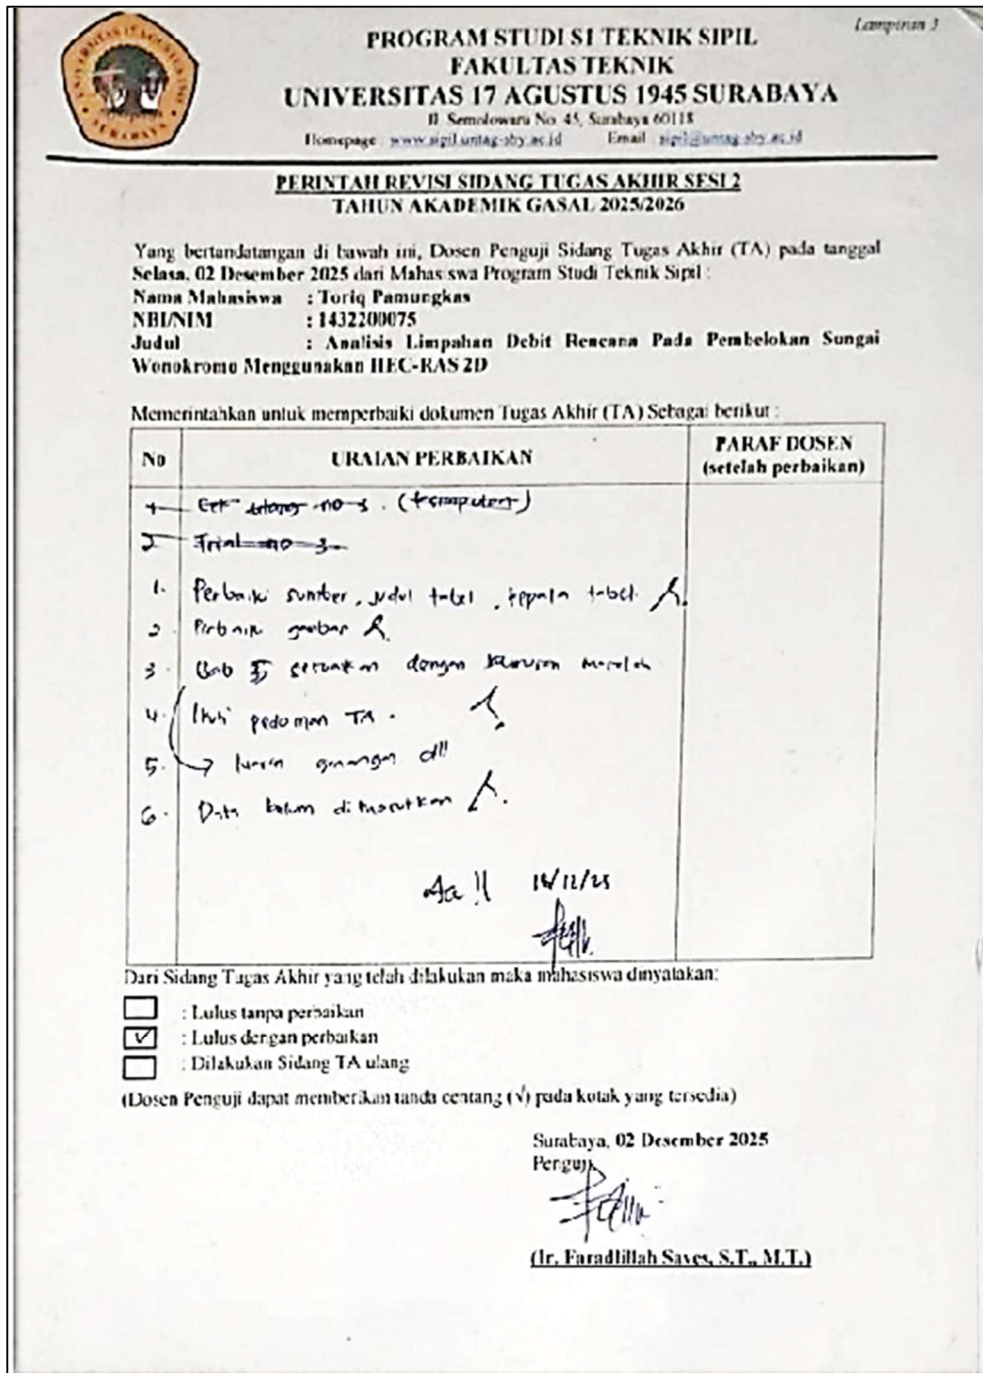 Lampiran 3
UNIVERSITAS 17 AGUSTUS 1945
SURABAYA
PROGRAM STUDI S1 TEKNIK SIPIL
FAKULTAS TEKNIK
UNIVERSITAS 17 AGUSTUS 1945 SURABAYA
Jl. Semolowaru No. 45, Surabaya 60118
Homepage : www.sipil.untag-sby.ac.id Email : sipil@untag-sby.ac.id
PERINTAH REVISI SIDANG TUGAS AKHIR SESI 2
TAHUN AKADEMIK GASAL 2025/2026
Yang bertandatangan di bawah ini, Dosen Penguji Sidang Tugas Akhir (TA) pada tanggal
Selasa, 02 Desember 2025 dari Mahasiswa Program Studi Teknik Sipil :
Nama Mahasiswa : Toriq Pamungkas
NBI/NIM : 1432200075
Judul : Analisis Limpahan Debit Rencana Pada Pembelokan Sungai
Wonokromo Menggunakan HEC-RAS 2D
Memerintahkan untuk memperbaiki dokumen Tugas Akhir (TA) Sebagai berikut :
No URAIAN PERBAIKAN PARAF DOSEN
(setelah perbaikan)
1 no 3.
2 Trial no 3
1. Perbaiki sumber, judul tabel, kepala tabel
2. Perbaiki gambar
3. Bab 5 sesuaikan dengan masalah
4. Ikuti pedoman TA.
5. genangan dll
6. Data belum dimasukkan
Acc !! /12/25
Dari Sidang Tugas Akhir yang telah dilakukan maka mahasiswa dinyatakan:
: Lulus tanpa perbaikan
✓ : Lulus dengan perbaikan
: Dilakukan Sidang TA ulang
(Dosen Penguji dapat memberikan tanda centang (√) pada kotak yang tersedia)
Surabaya, 02 Desember 2025
Penguji,
(Ir. Faradlillah Saves, S.T., M.T.)